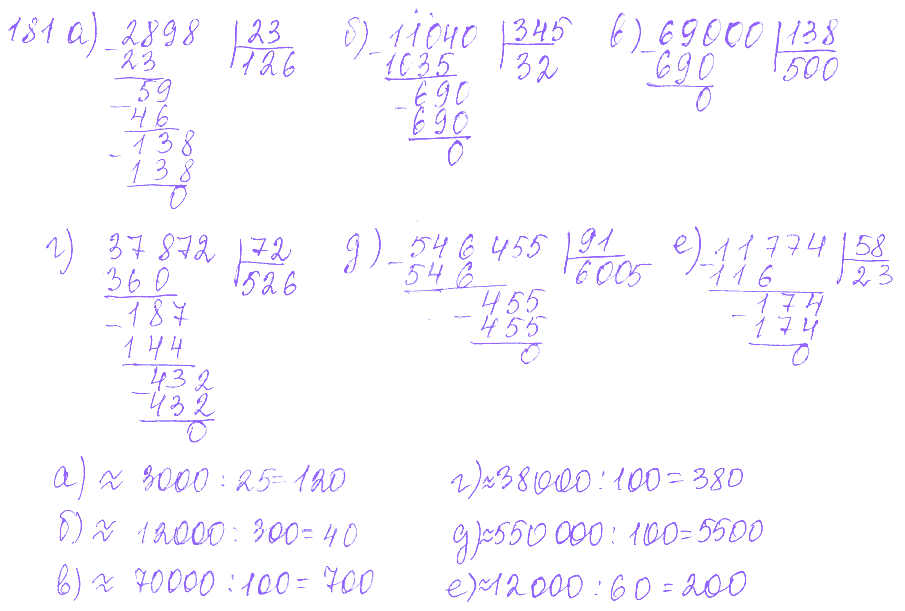 181 а) 2898 | 23 б) 11040 | 345 в) 69000 | 138
- 23 126 - 1035 32 - 690 500
59 690 0
- 46 - 690
138 0
- 138
0
г) 37872 | 72 д) 546455 | 91 е) 11774 | 58
360 526 - 546 6005 - 116 23
- 187 - 455 - 174
144 455 174
- 432 0 0
432
0
а) ≈ 3000 : 25 = 120 г) ≈ 38000 : 100 = 380
б) ≈ 12000 : 300 = 40 д) ≈ 550 000 : 100 = 5500
в) ≈ 70000 : 100 = 700 е) ≈ 12000 : 60 = 200